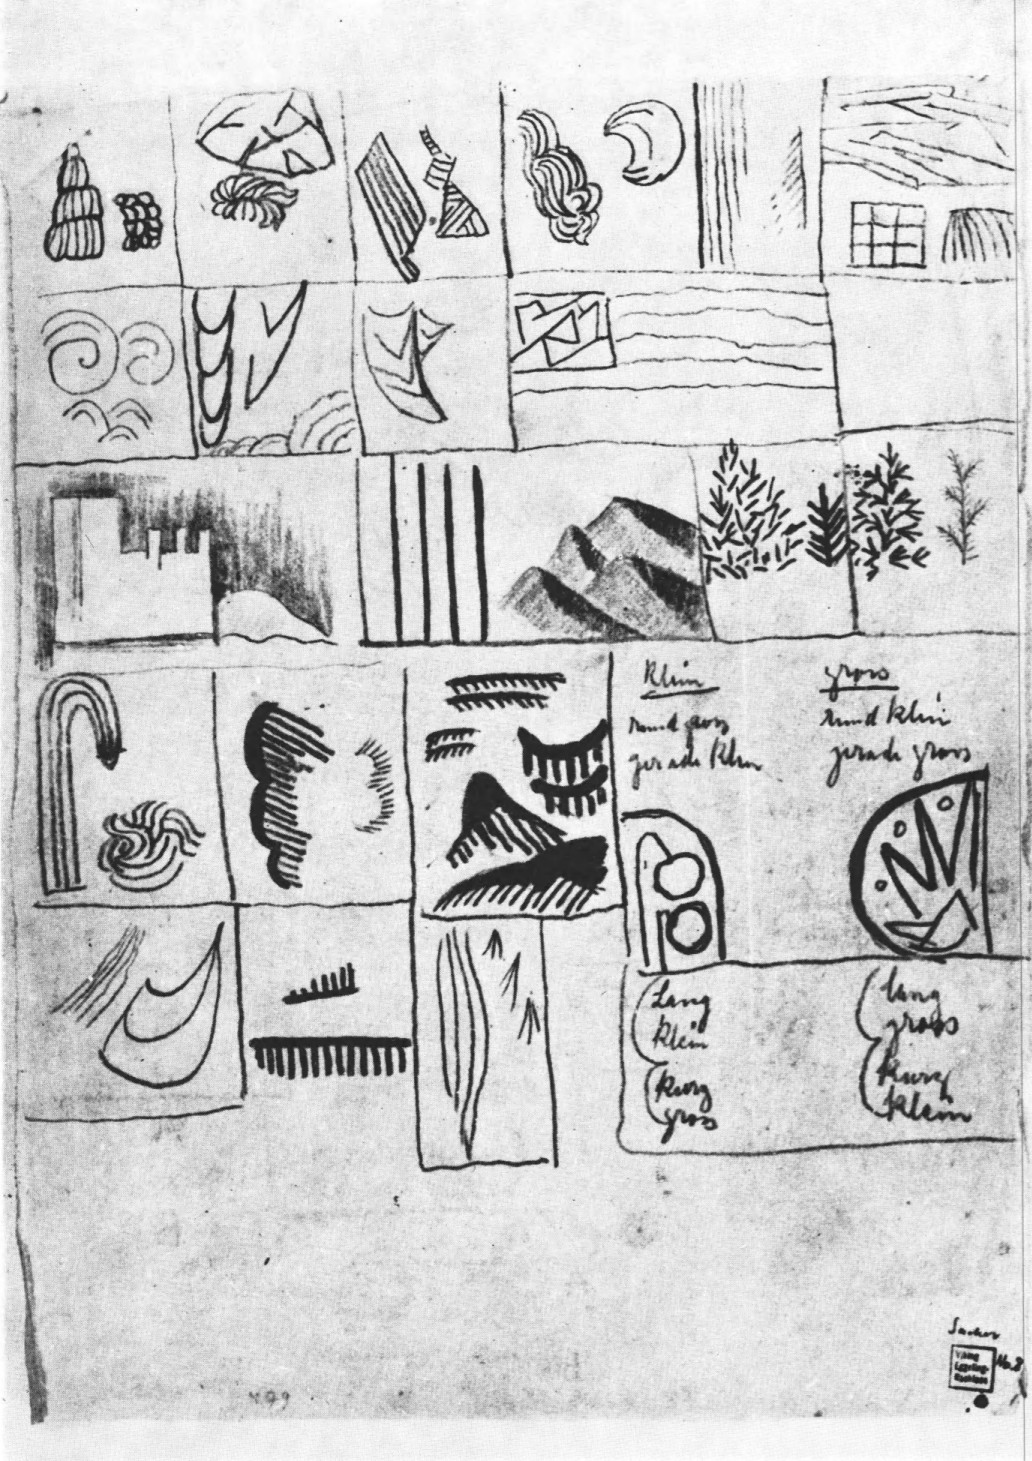 Klein
gross
rund gross
rund klein
gerade klein
gerade gross
Lang
klein
Kurz
gross
lang
gross
Kurz
klein
Viking
Eggeling
No. 8
499